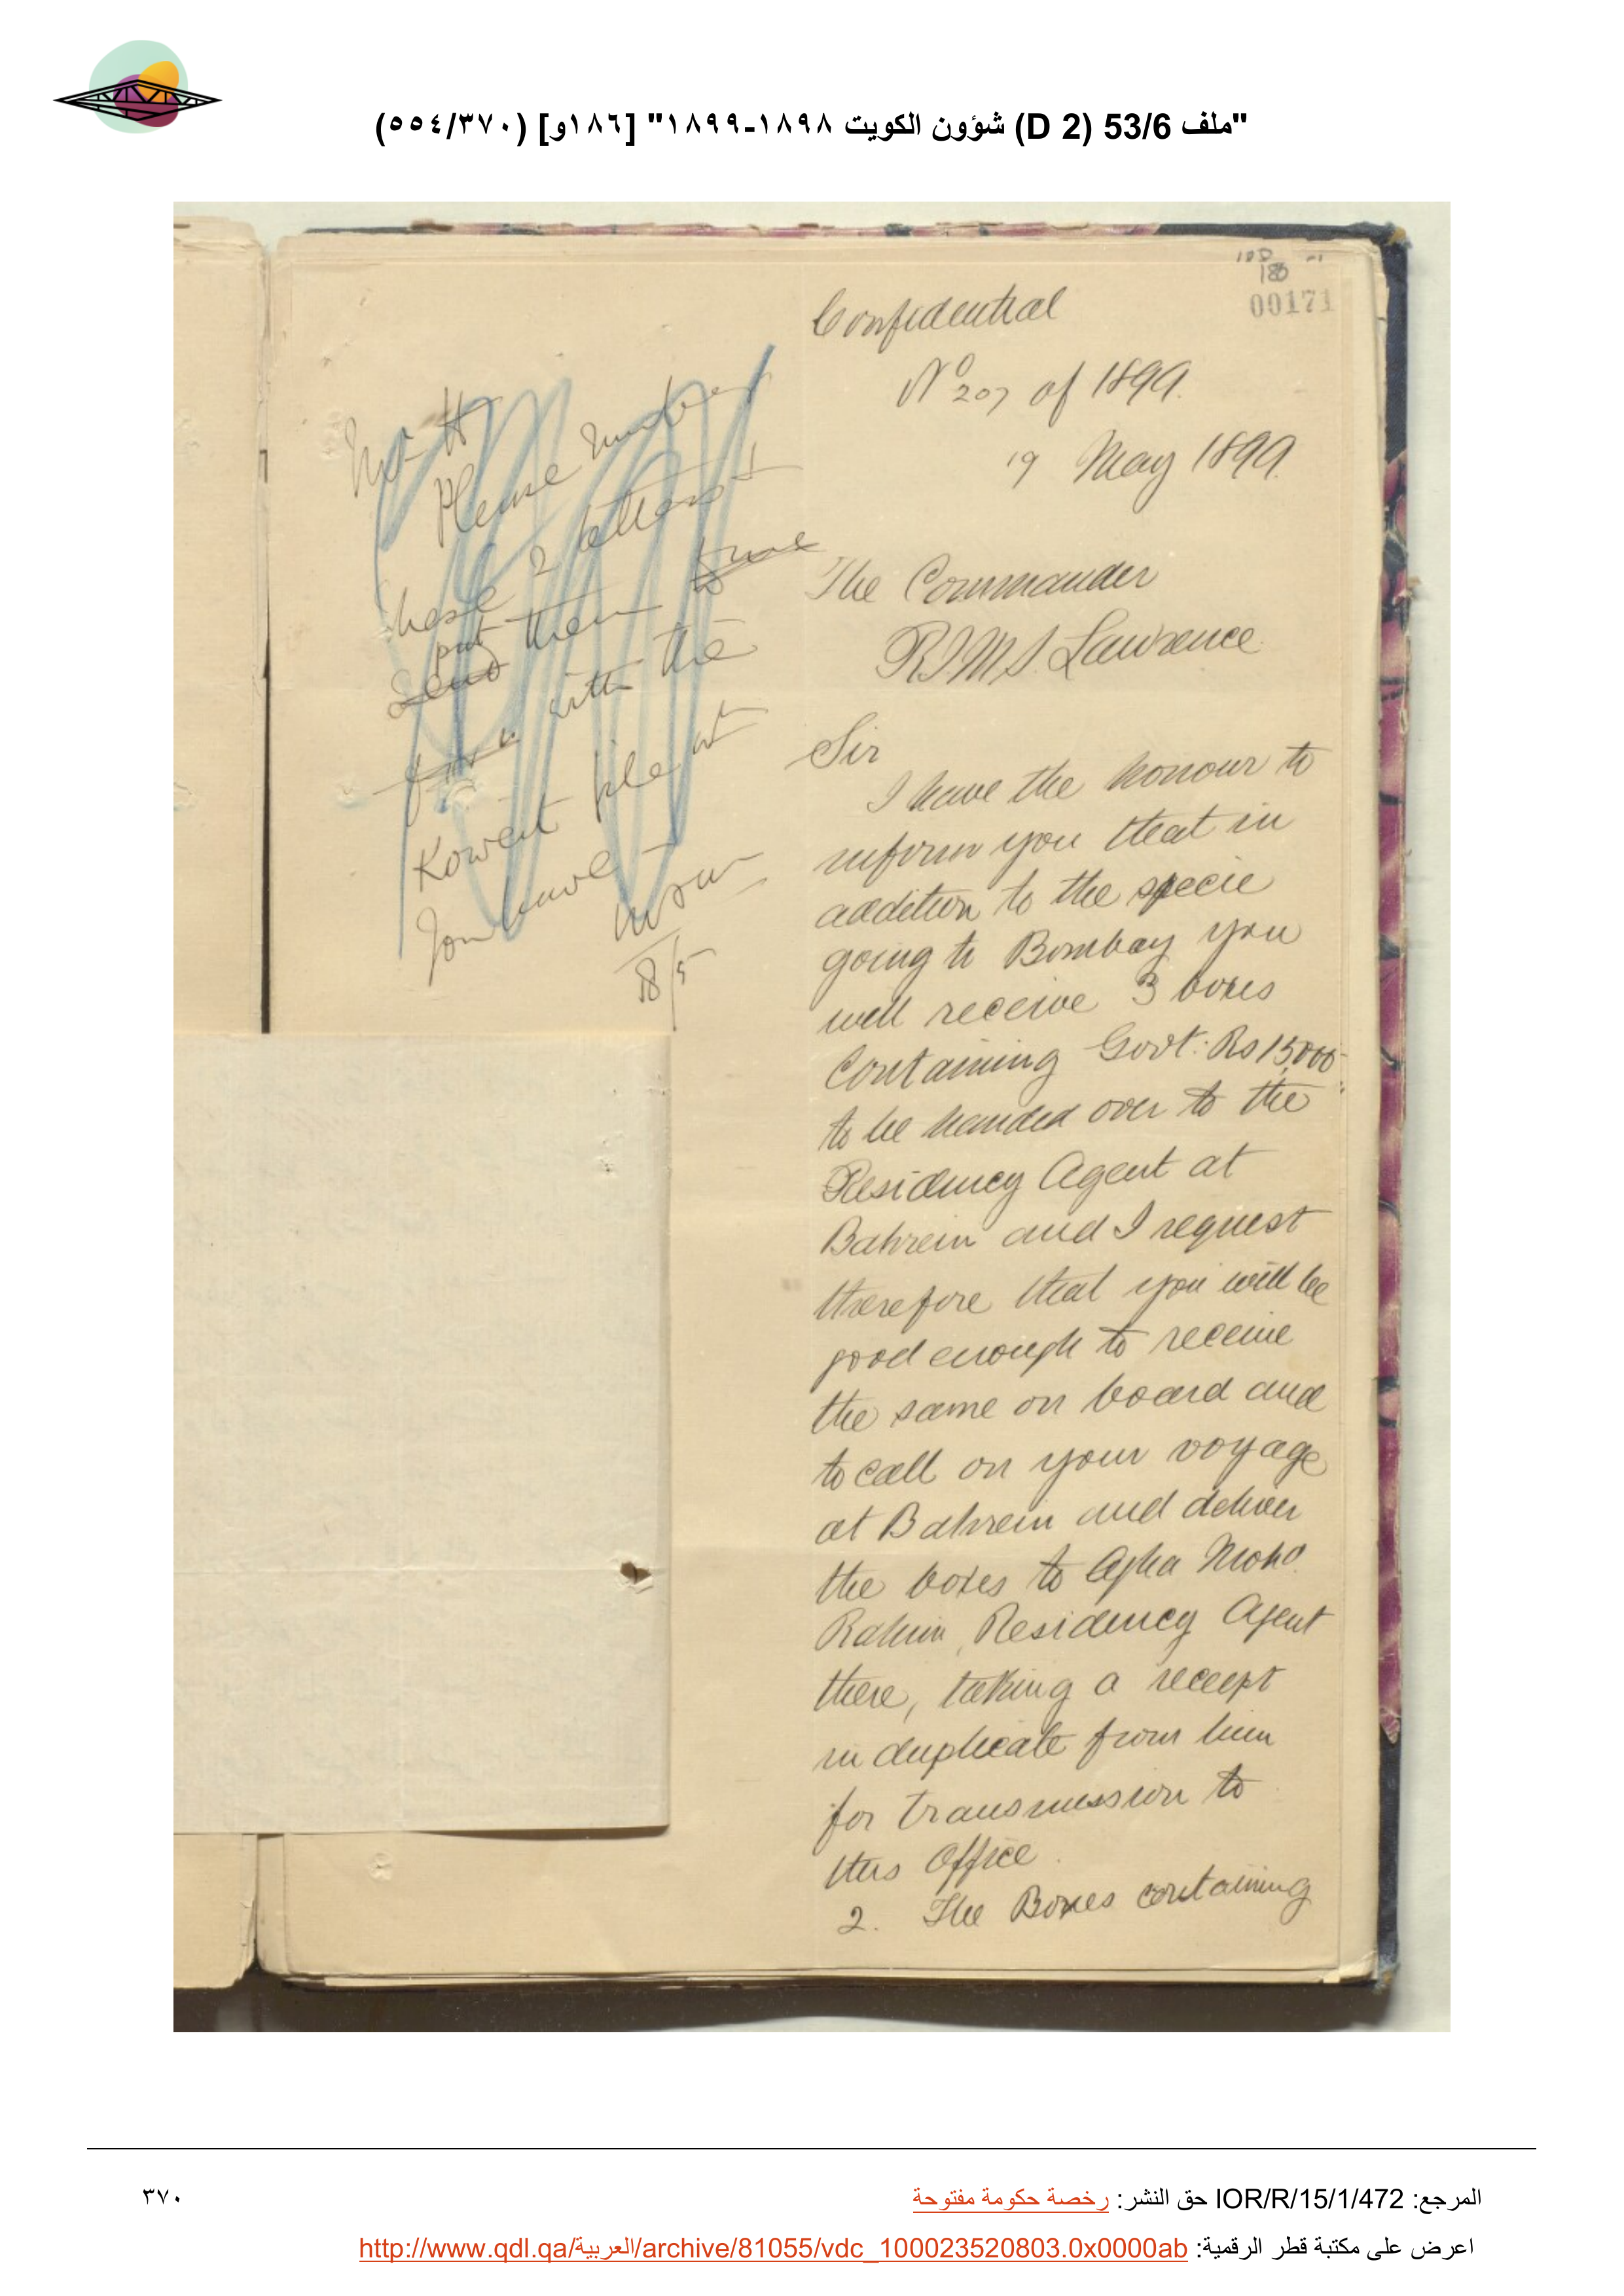 "ملف 53/6 (D 2) شؤون الكويت ١٨٩٨-١٨٩٩" [١٨٦و] (٥٥٤/٣٧٠)
00171
Confidential
No 207 of 1899.
19 May 1899.
The Commander
R.I.M.S. Lawrence
Sir
I have the honour to
inform you that in
addition to the specie
going to Bombay you
will receive 3 boxes
containing Govt: Rs 15,000
to be handed over to the
Residency Agent at
Bahrein and I request
therefore that you will be
good enough to receive
the same on board and
to call on your voyage
at Bahrein and deliver
the boxes to Agha Mohd
Rahim, Residency Agent
there, taking a receipt
in duplicate from him
for transmission to
this Office.
2. The Boxes containing
Please number
these 2 letters &
put them
Send
with the
Koweit file wt
You have
18/5
المرجع: IOR/R/15/1/472 حق النشر: رخصة حكومة مفتوحة
٣٧٠
اعرض على مكتبة قطر الرقمية: http://www.qdl.qa/العربية/archive/81055/vdc_100023520803.0x0000ab